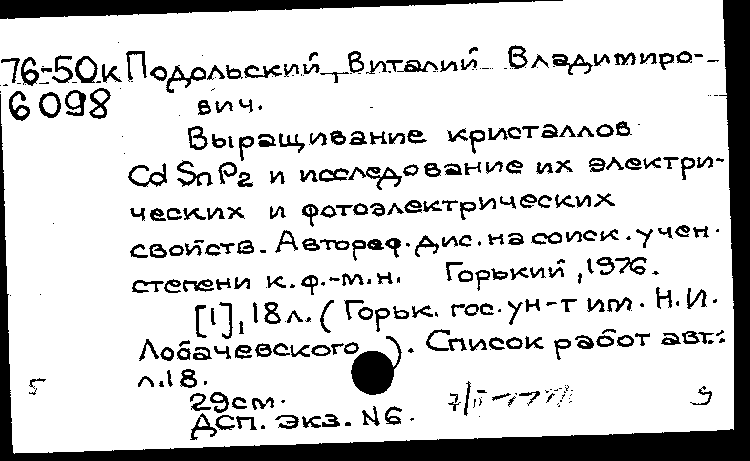 76-50к Подольский, Виталий Владимиро-
6098 вич.
Выращивание кристаллов
CdSnP2 и исследование их электри-
ческих и фотоэлектрических
свойств. Автореф. дис. на соиск. учен.
степени к. ф.-м. н. Горький, 1976.
[1], 18 л. (Горьк. гос. ун-т им. Н. И.
Лобачевского). Список работ авт.:
5 л. 18.
29см.
ДСП. Экз. N6.
9